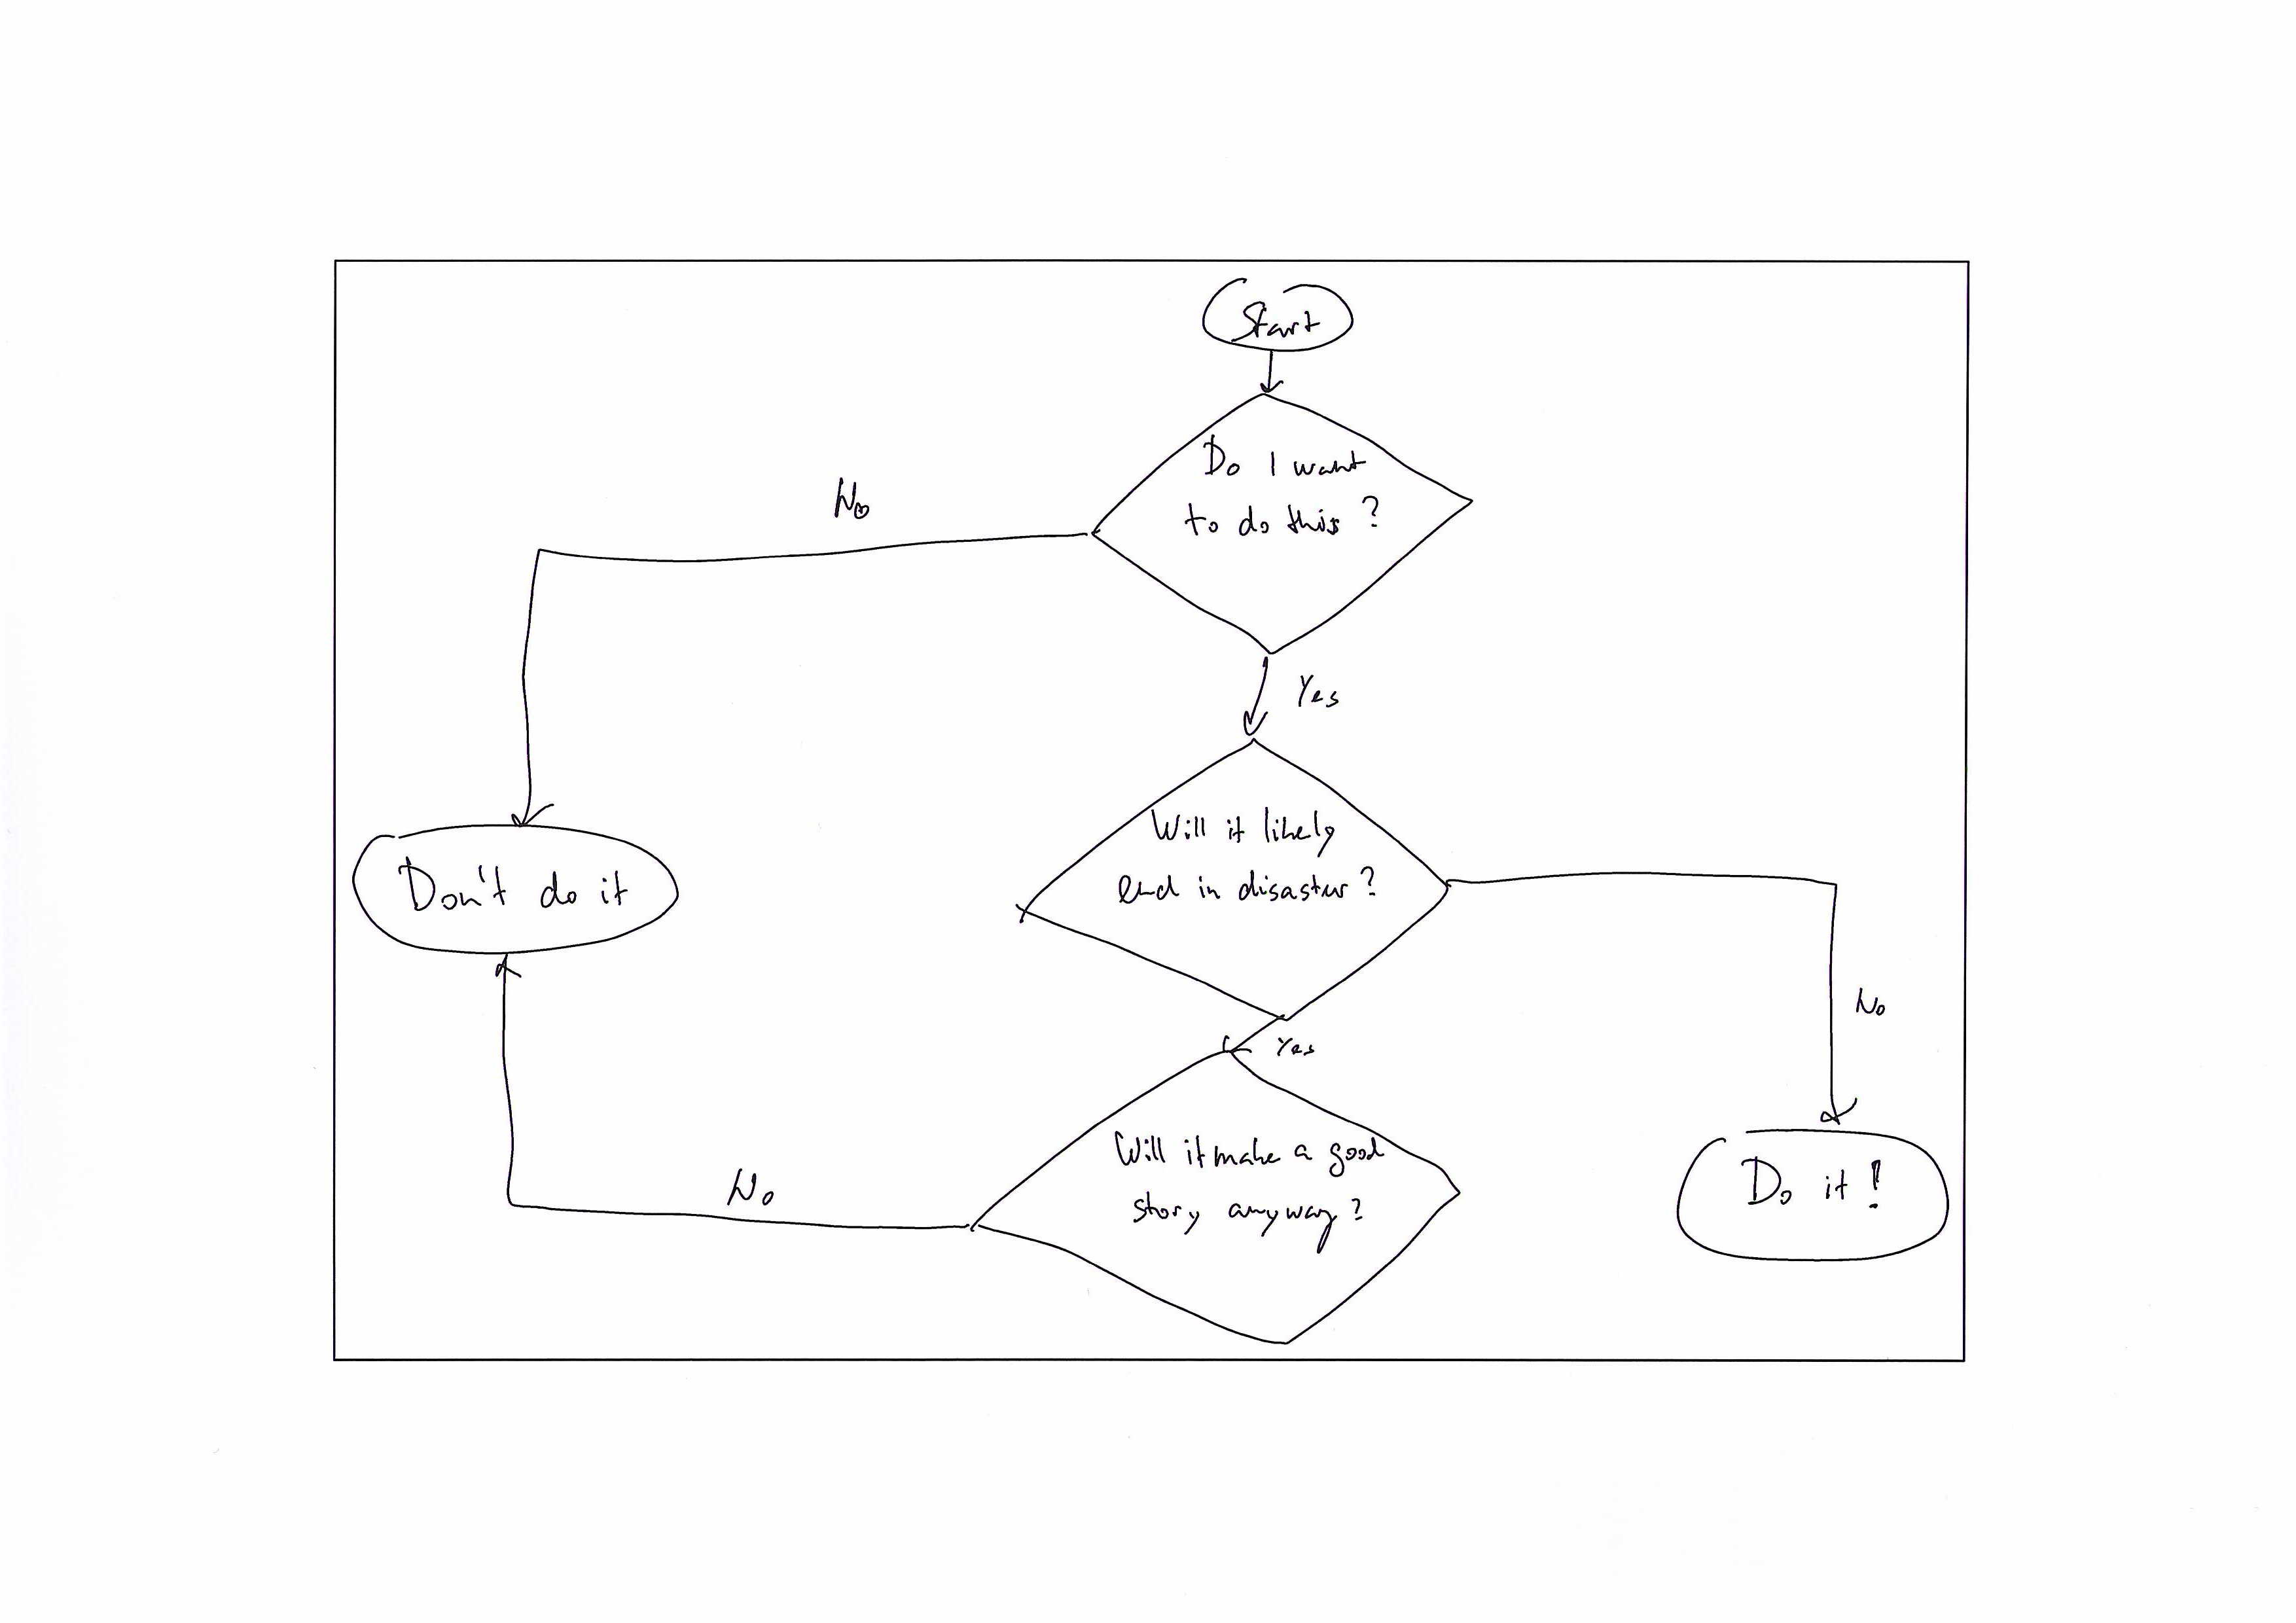 Start
Do I want
to do this?
No
Yes
Will it likely
end in disaster?
Don't do it
No
Yes
Will it make a good
story anyway?
No
Do it!